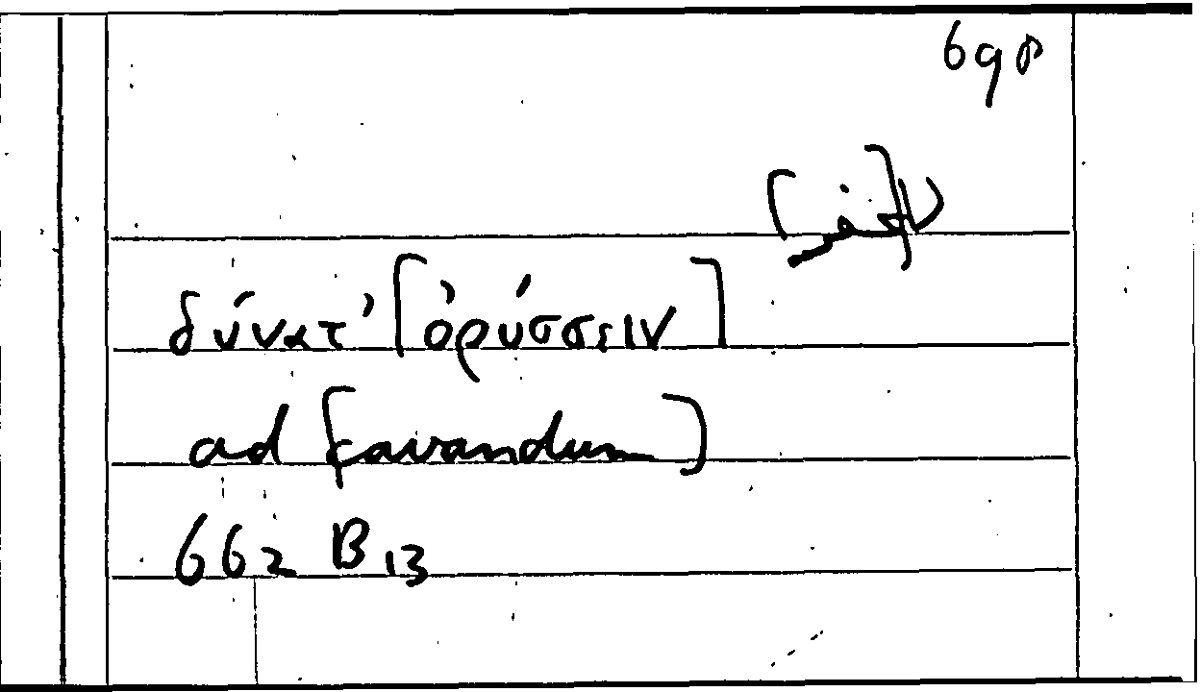 698
δύνατ' [ὀρύσσειν]
ad [cavandum]
662 B13